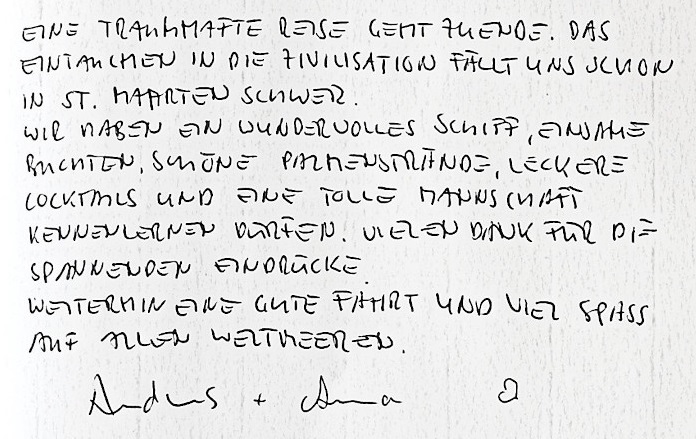 EINE TRAUMHAFTE REISE GEHT ZUENDE. DAS
EINTAUCHEN IN DIE ZIVILISATION FÄLLT UNS SCHON
IN ST. MAARTEN SCHWER.
WIR HABEN EIN WUNDERVOLLES SCHIFF, EINSAME
BUCHTEN, SCHÖNE PALMENSTRÄNDE, LECKERE
COCKTAILS UND EINE TOLLE MANNSCHAFT
KENNENLERNEN DÜRFEN. VIELEN DANK FÜR DIE
SPANNENDEN EINDRÜCKE.
WEITERHIN EINE GUTE FAHRT UND VIEL SPASS
AUF ALLEN WELTMEEREN.
Andreas + Anna